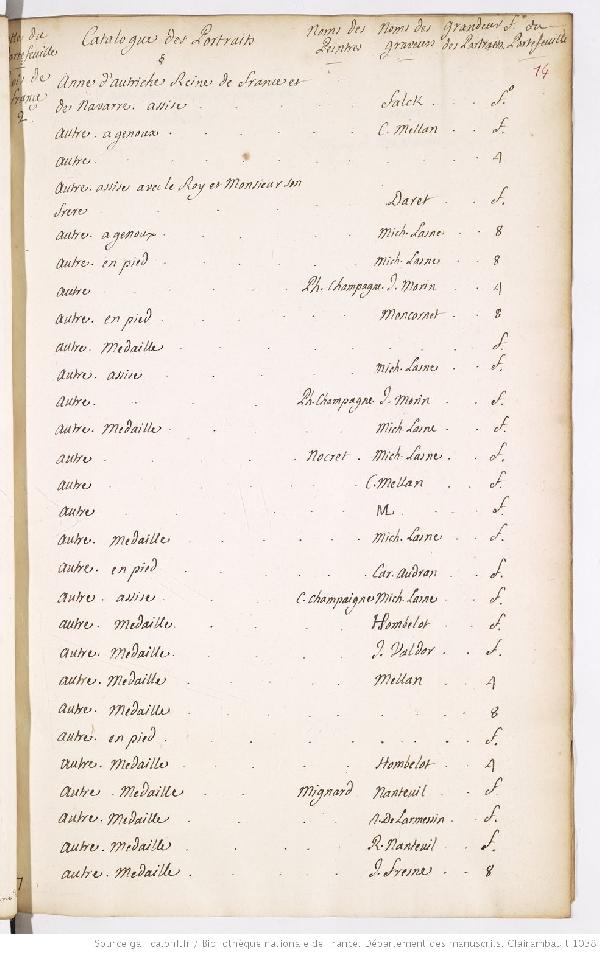 Catalogue des Portraits Noms des Peintres Noms des graveurs Grandeur des Portraits fo. du Portefeuille
14
Anne d'autriche Reine de france et
de Navarre. assise . . . falck . . fo.
autre. a genoux . . . C. Mellan . . f.
autre . . . 4
autre. assise avec le Roy et Monsieur son
frere . . . Daret . . f.
autre. a genoux . . . Mich. Lasne . . 8
autre. en pied . . . Mich. Lasne . . 8
autre . . . Ph. Champagne J. Morin . . 4
autre. en pied . . . Moncornet . . 8
autre. Medaille . . . f.
autre. assise . . . Mich. Lasne . . f.
autre. . . . Ph. Champagne J. Morin . . f.
autre. Medaille . . . Mich Lasne . . f.
autre . . . Nocret . Mich. Lasne . . f.
autre . . . C. Mellan . . f.
autre . . . M. . . f.
autre. medaille . . . Mich. Lasne . . f.
autre. en pied . . . Car. Audran . . f.
autre. assise . . . C. Champaigne Mich. Lasne . . f.
autre. Medaille. . . . Hombelot . . f.
autre. Medaille. . . . J. Valdor . . f.
autre. Medaille . . . Mellan . . 4
autre. Medaille . . . 8
autre. en pied . . . f.
autre. Medaille . . . Hombelot . . 4
autre. Medaille . . . Mignard Nanteuil . . f.
autre. Medaille . . . N. De Larmessin . . f.
autre. Medaille . . . R. Nanteuil . . f.
autre. Medaille . . . J. Fresne . . 8
Source gallica.bnf.fr / Bibliothèque nationale de France. Département des manuscrits. Clairambault 1038